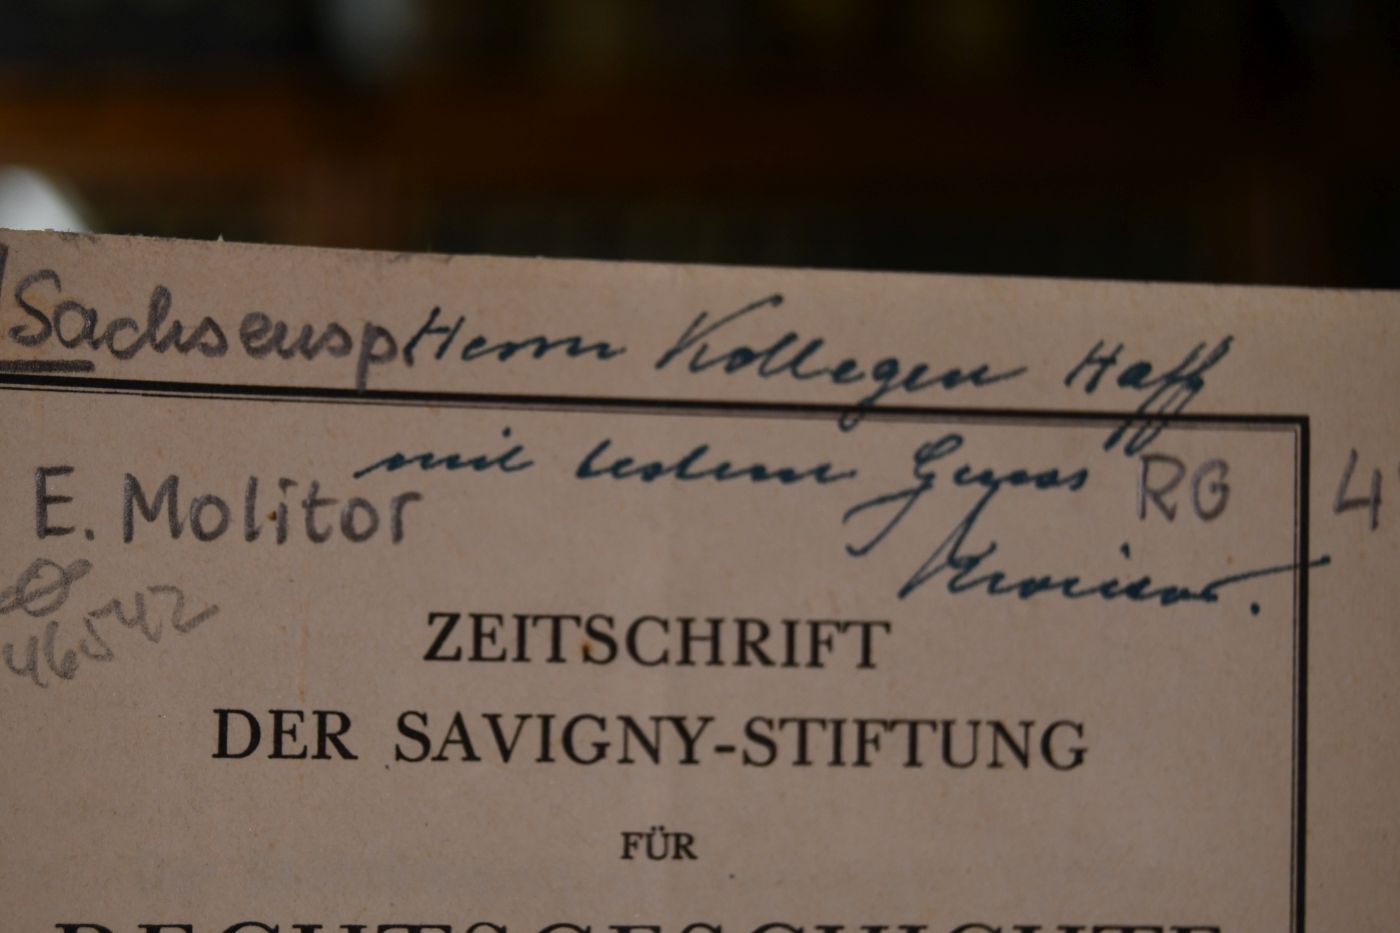 Sachsensp.
Herrn Kollegen Haff
mit bestem Gruss
E. Molitor
RG 4
Molitor.
46542
ZEITSCHRIFT
DER SAVIGNY-STIFTUNG
FÜR
RECHTSGESCHICHTE